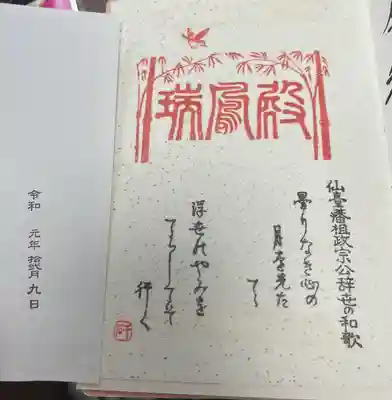 瑞鳳殿
仙臺藩祖政宗公辞世の和歌
曇りなき心の
月を先だ
てゝ
浮世のやみを
てらしてぞ
行く
令和 元年 拾弐月 九日